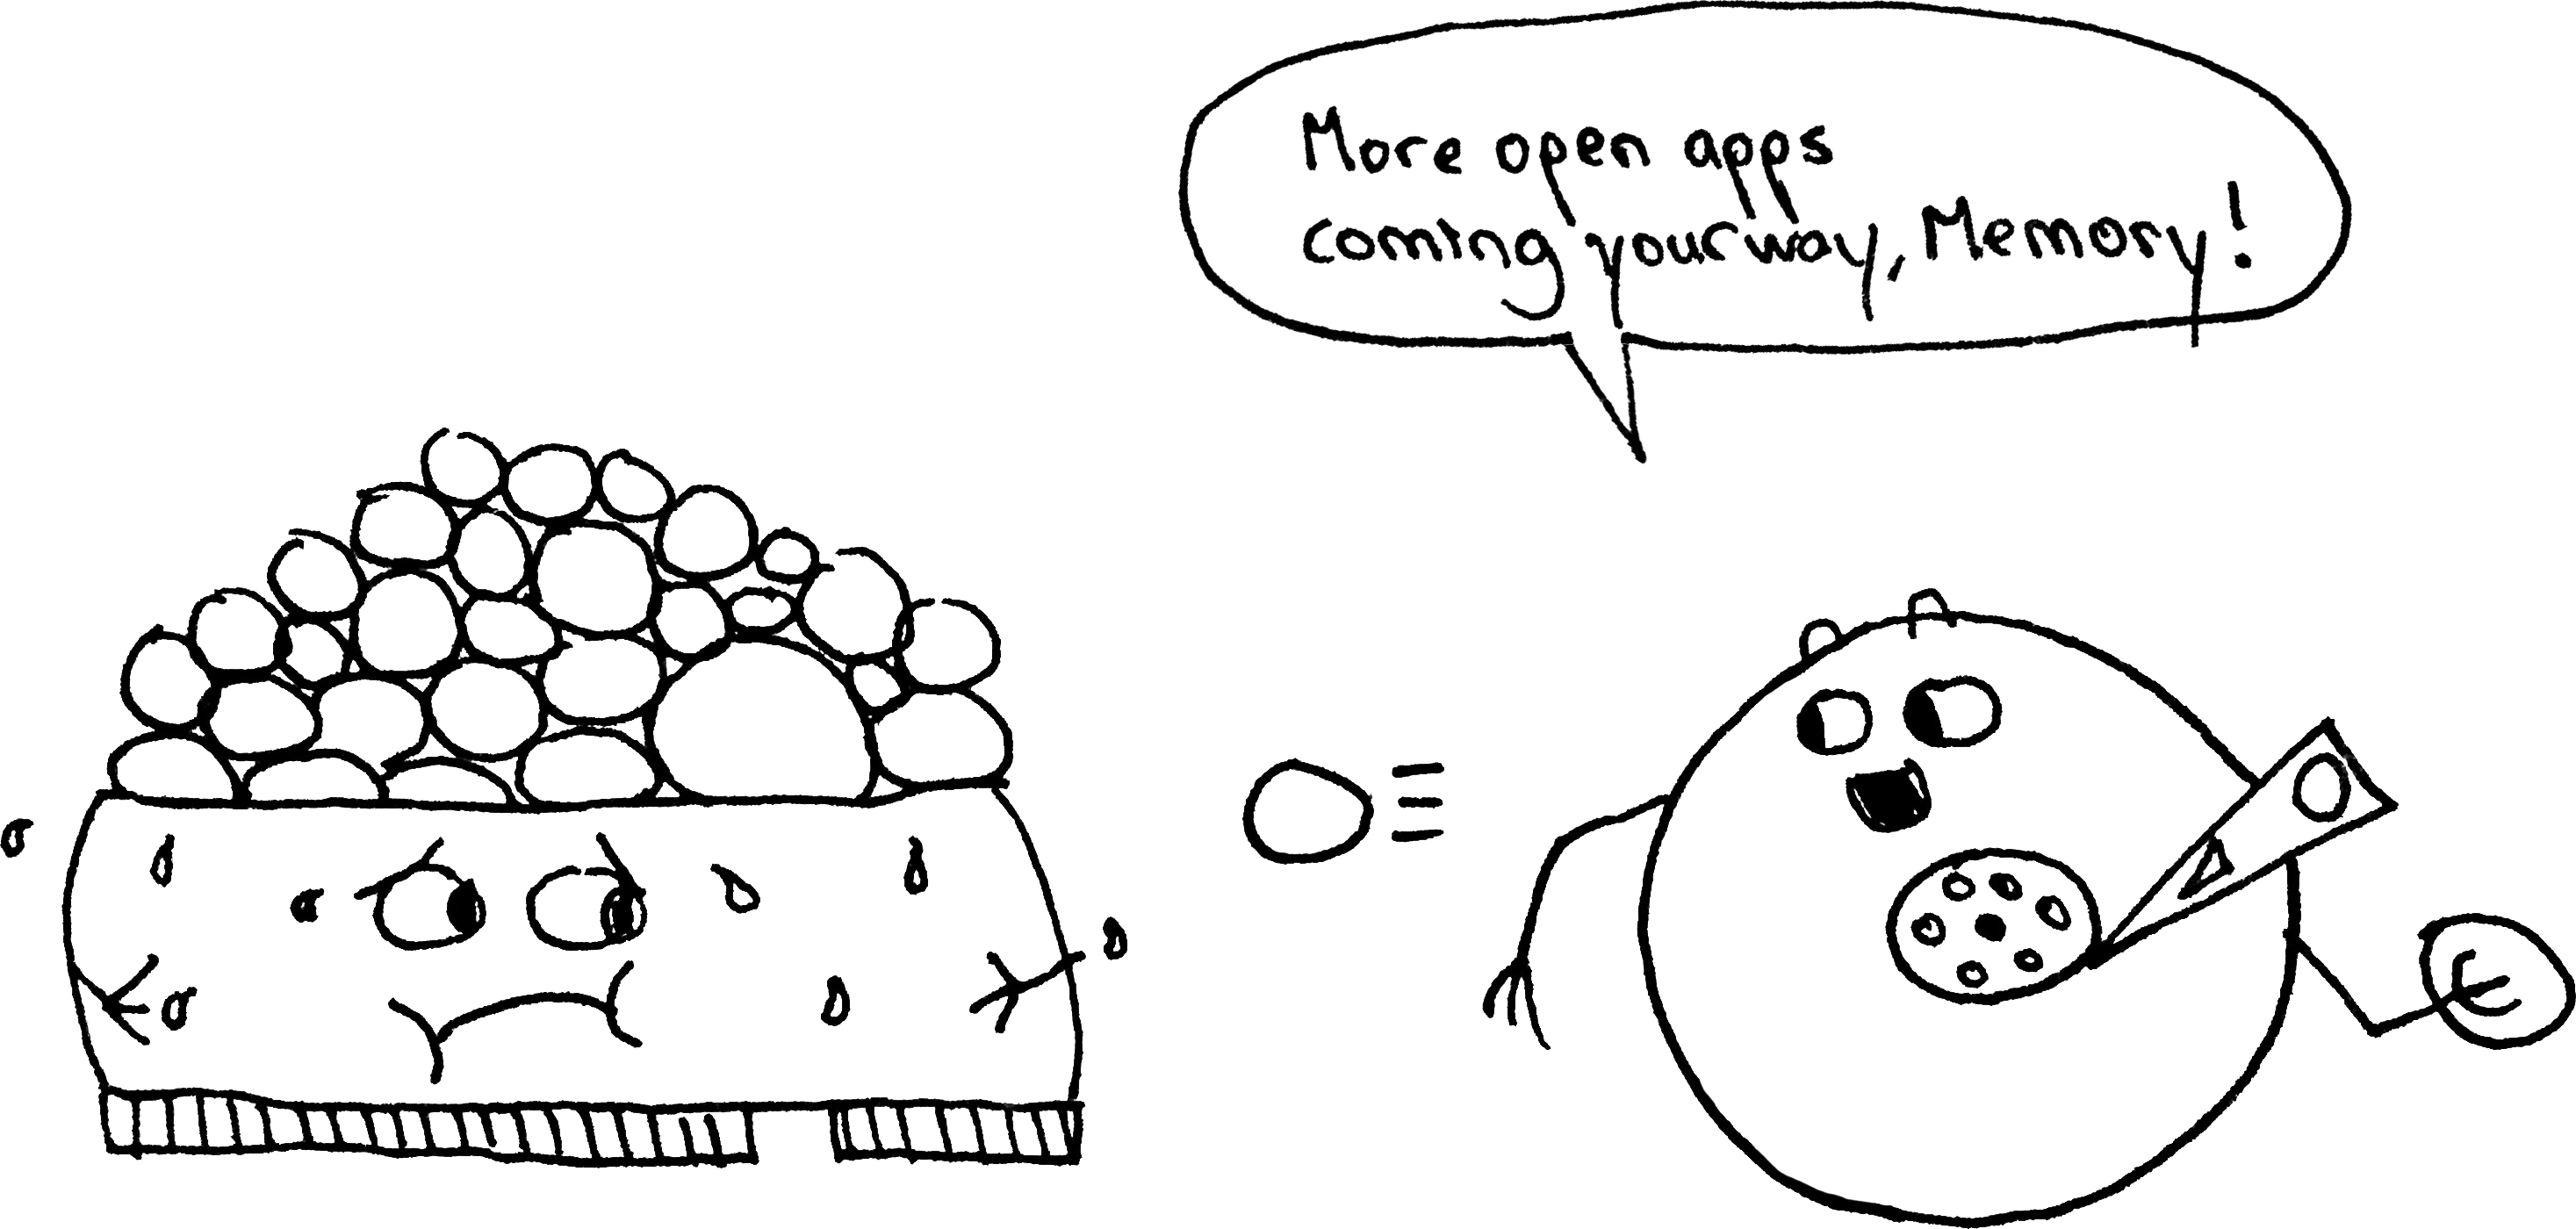 More open apps
coming your way, Memory!